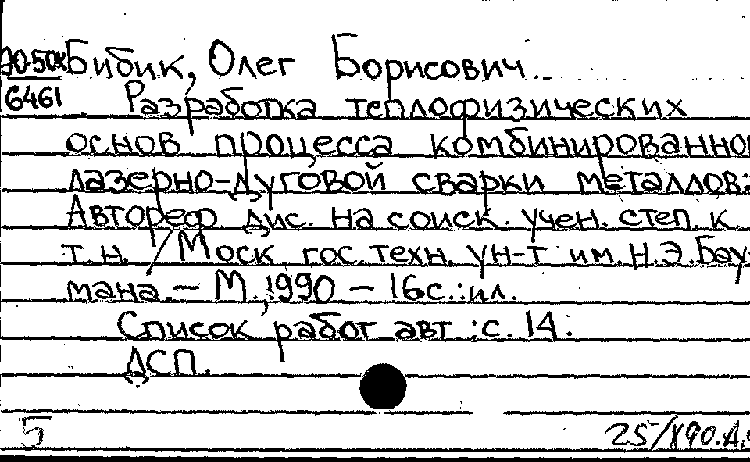 Бибик, Олег Борисович
6461 Разработка теплофизических
основ процесса комбинированно
лазерно-дуговой сварки металлов.
Автореф. дис. на соиск. учен. степ. к.
т.н. / Моск. гос. техн. ун-т им. Н.Э.Бау-
мана. - М., 1990 - 16с.:ил.
Список работ авт.: с. 14.
ДСП.
5